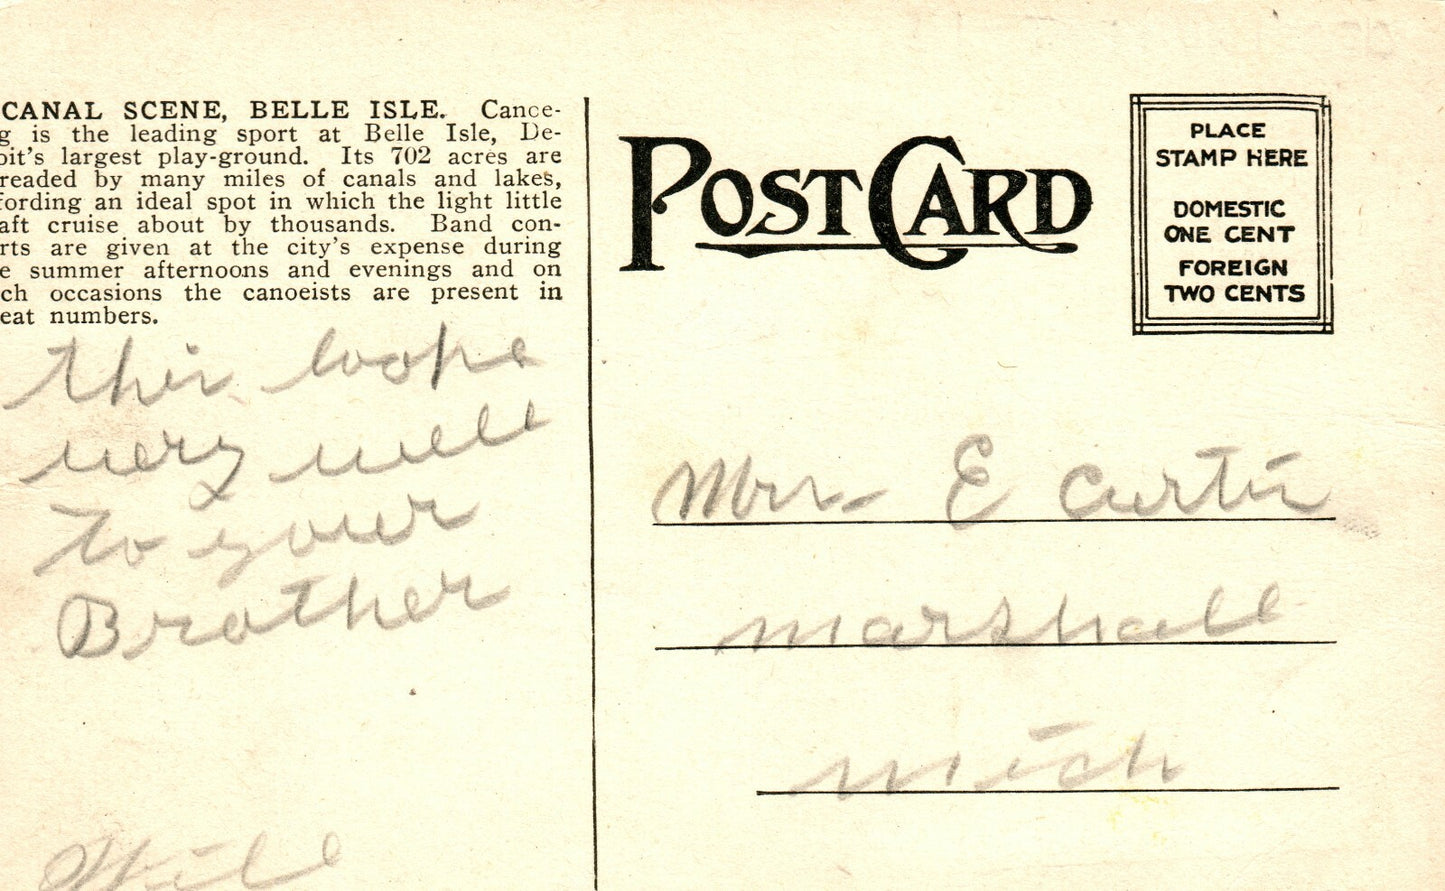 CANAL SCENE, BELLE ISLE. Canoe-
g is the leading sport at Belle Isle, De-
oit's largest play-ground. Its 702 acres are
readed by many miles of canals and lakes,
fording an ideal spot in which the light little
aft cruise about by thousands. Band con-
rts are given at the city's expense during
e summer afternoons and evenings and on
ch occasions the canoeists are present in
eat numbers.
this looks
very well
to your
Brother
POST CARD
PLACE
STAMP HERE
DOMESTIC
ONE CENT
FOREIGN
TWO CENTS
Mrs E Curtis
Marshall
Mich